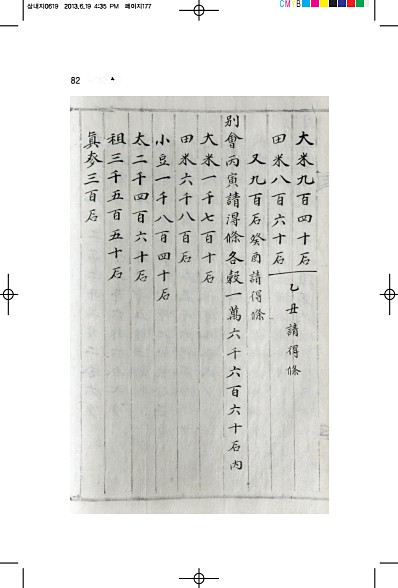 삼내지0619 2013.6.19 4:35 PM 페이지177
CMYB
82
大米九百四十石
田米八百六十石 乙丑請得條
又九百石癸酉請得條
別會丙寅請得條各穀一萬六千六百六十石內
大米一千七百十石
田米六千八百石
小豆一千八百四十石
太二千四百六十石
租三千五百五十石
眞麥三百石